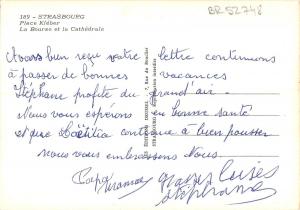 189 - STRASBOURG
Place Kléber
La Bourse et la Cathédrale
BR 52748
Avons bien reçu votre lettre continuons
à passer de bonnes vacances
Stéphane profite du grand'air.
Nous vous espérons en bonne santé
et que Laëtitia continue à bien pousser
nous vous embrassons Nous
Papa Maman
Grosses bises
Stéphane